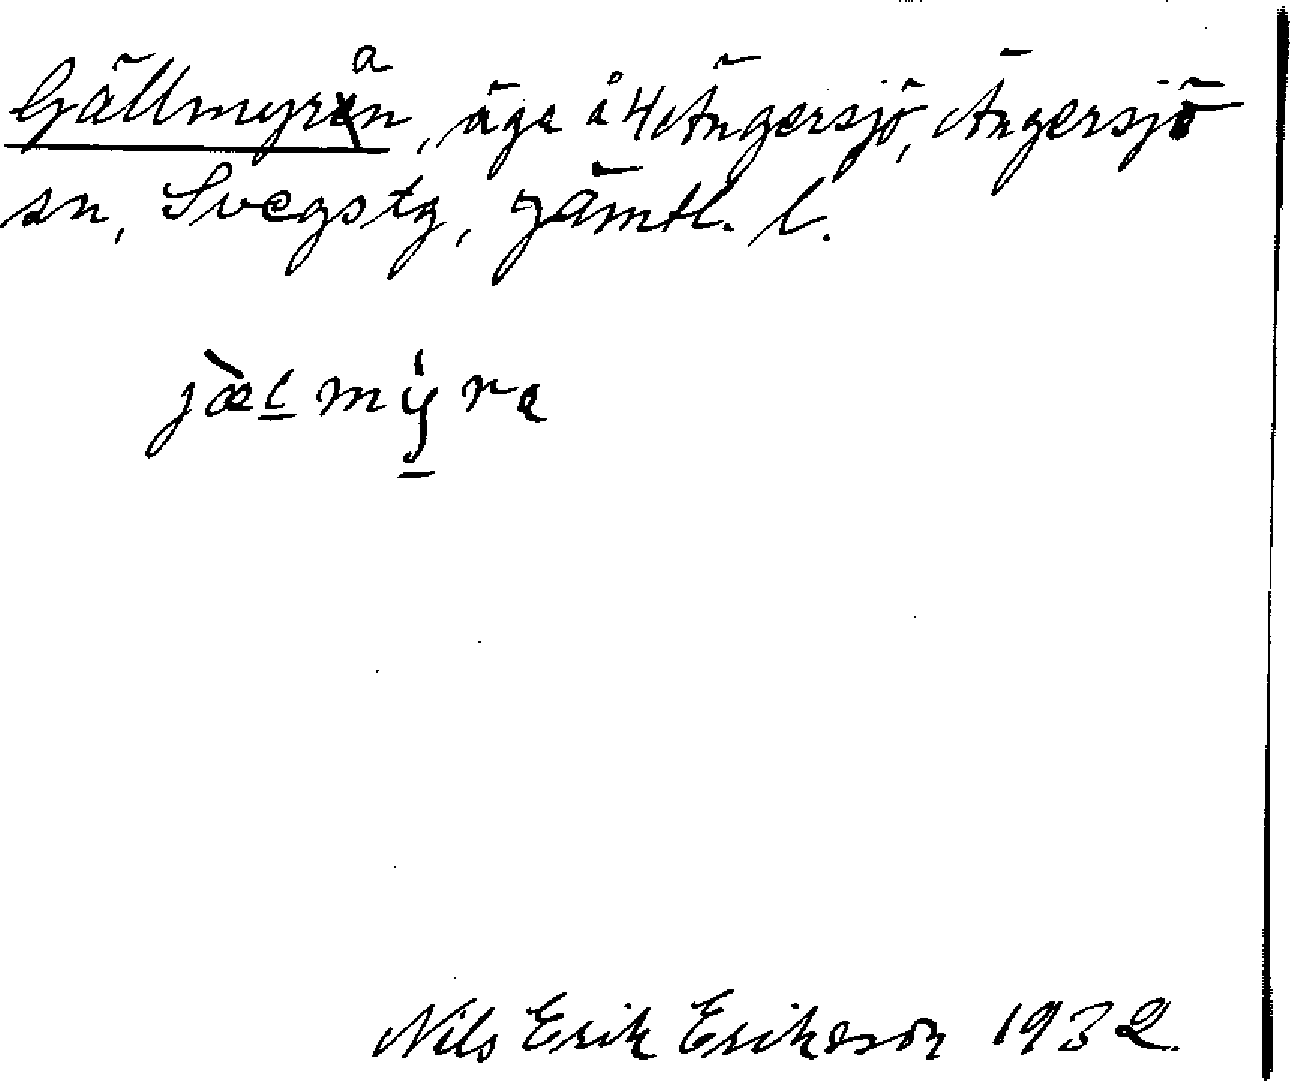 Gällmyran, äga å 4 Ängersjö, Ängersjö
sn, Svegs tg, Jämtl. l.
jæ̀lmýra
Nils Erik Erikson 1932.